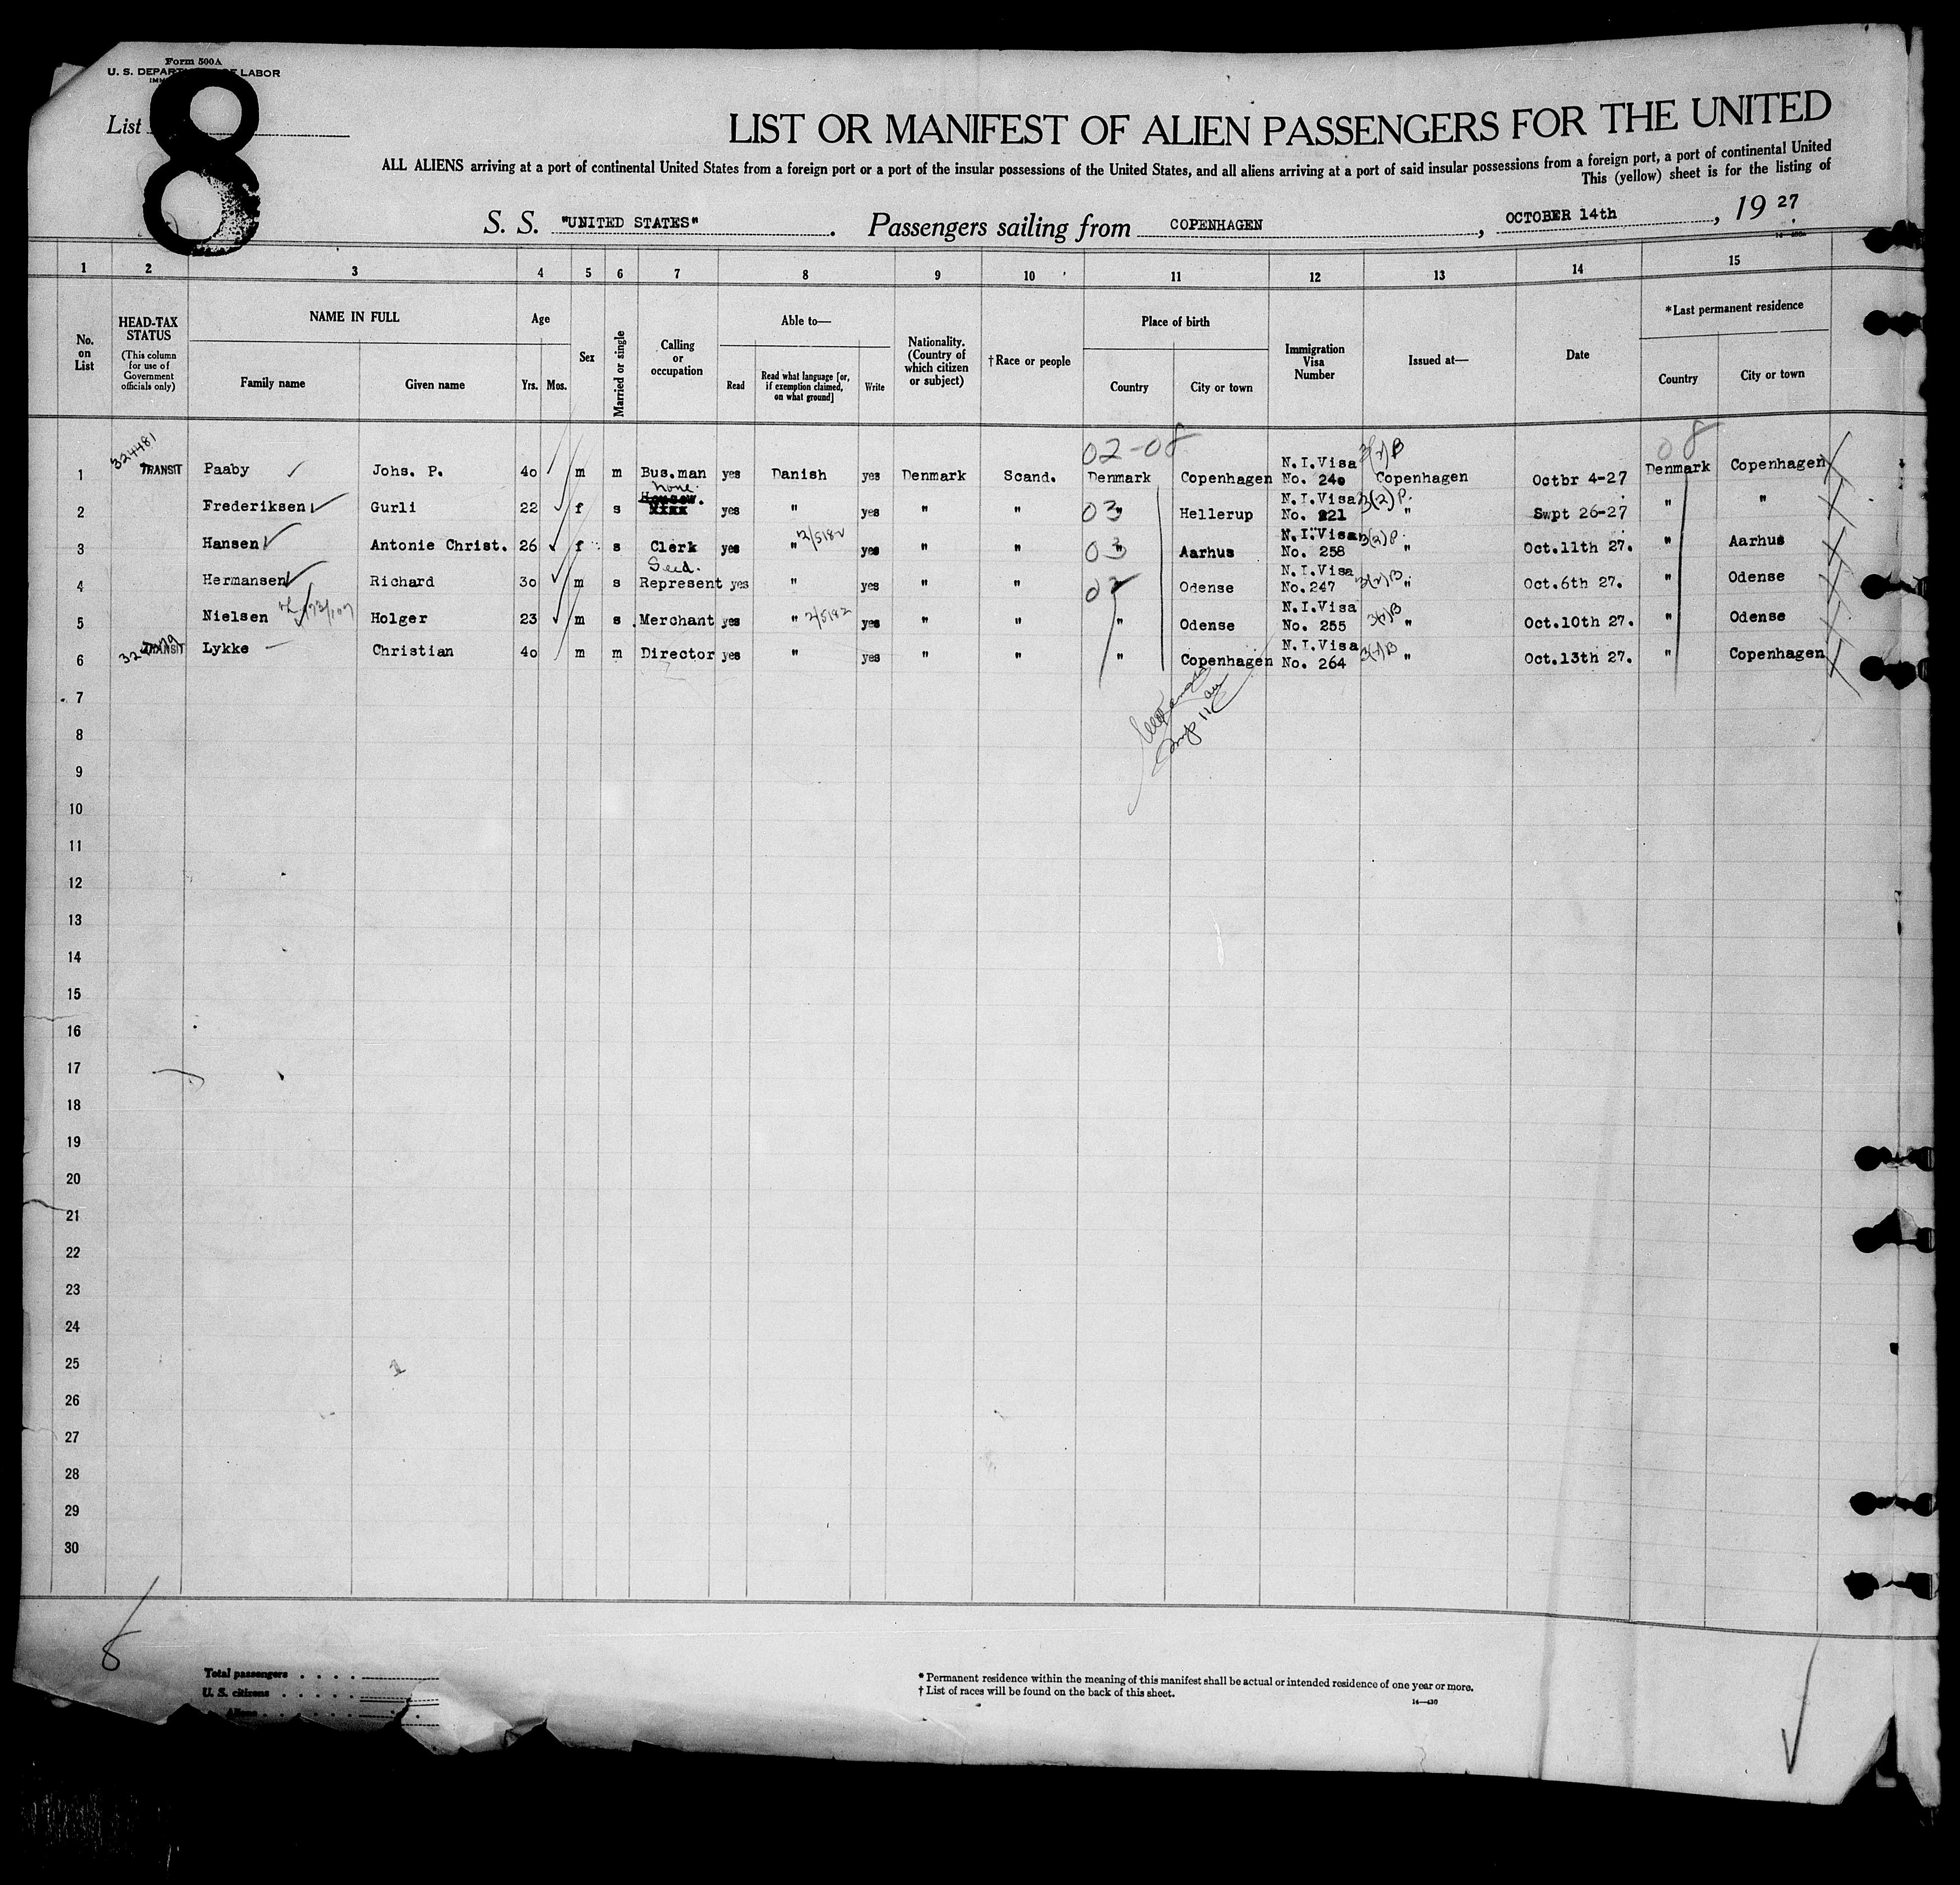 Form 500A
U. S. DEPARTMENT OF LABOR
List
8
LIST OR MANIFEST OF ALIEN PASSENGERS FOR THE UNITED
ALL ALIENS arriving at a port of continental United States from a foreign port or a port of the insular possessions of the United States, and all aliens arriving at a port of said insular possessions from a foreign port, a port of continental United
This (yellow) sheet is for the listing of
S. S. "UNITED STATES" . Passengers sailing from COPENHAGEN , OCTOBER 14th , 19 27
1 2 3 4 5 6 7 8 9 10 11 12 13 14 15
No. on List
HEAD-TAX STATUS (This column for use of Government officials only)
NAME IN FULL Family name Given name
Age Yrs. Mos.
Sex
Married or single
Calling or occupation
Able to— Read Read what language [or, if exemption claimed, on what ground] Write
Nationality. (Country of which citizen or subject)
†Race or people
Place of birth Country City or town
Immigration Visa Number
Issued at—
Date
*Last permanent residence Country City or town
324481 02-08 3(2)B 08
1 TRANSIT Paaby Johs. P. 4o m m Bus.man yes Danish yes Denmark Scand. Denmark Copenhagen N.I.Visa No. 24o Copenhagen Octbr 4-27 Denmark Copenhagen
none.
2 Frederiksen Gurli 22 f s Housew. xxxx yes " yes " " 03 " Hellerup N.I.Visa No. 221 3(2)P. " Swpt 26-27 " "
3 Hansen Antonie Christ. 26 f s Clerk yes " 2/5182 yes " " 03 " Aarhus N.I.Visa No. 258 3(2)P. " Oct.11th 27. " Aarhus
Seed.
4 Hermansen Richard 3o m s Represent yes " yes " " 03 " Odense N.I.Visa No.247 3(2)B " Oct.6th 27. " Odense
5 Nielsen Holger 23 m s Merchant yes " 2/5182 yes " " " Odense N.I.Visa No. 255 3(2)B " Oct.10th 27. " Odense
6 TRANSIT Lykke Christian 4o m m Director yes " yes " " " Copenhagen N.I.Visa No. 264 3(2)B " Oct.13th 27. " Copenhagen
7
8
9
10
11
12
13
14
15
16
17
18
19
20
21
22
23
24
25
26
27
28
29
30
8
Total passengers . . . .
U. S. citizens . . . . .
Aliens . . . . . .
* Permanent residence within the meaning of this manifest shall be actual or intended residence of one year or more.
† List of races will be found on the back of this sheet.
14—430